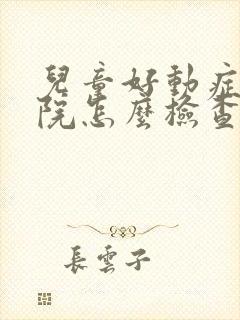 兒童好動症
院怎麼檢查
長雲子